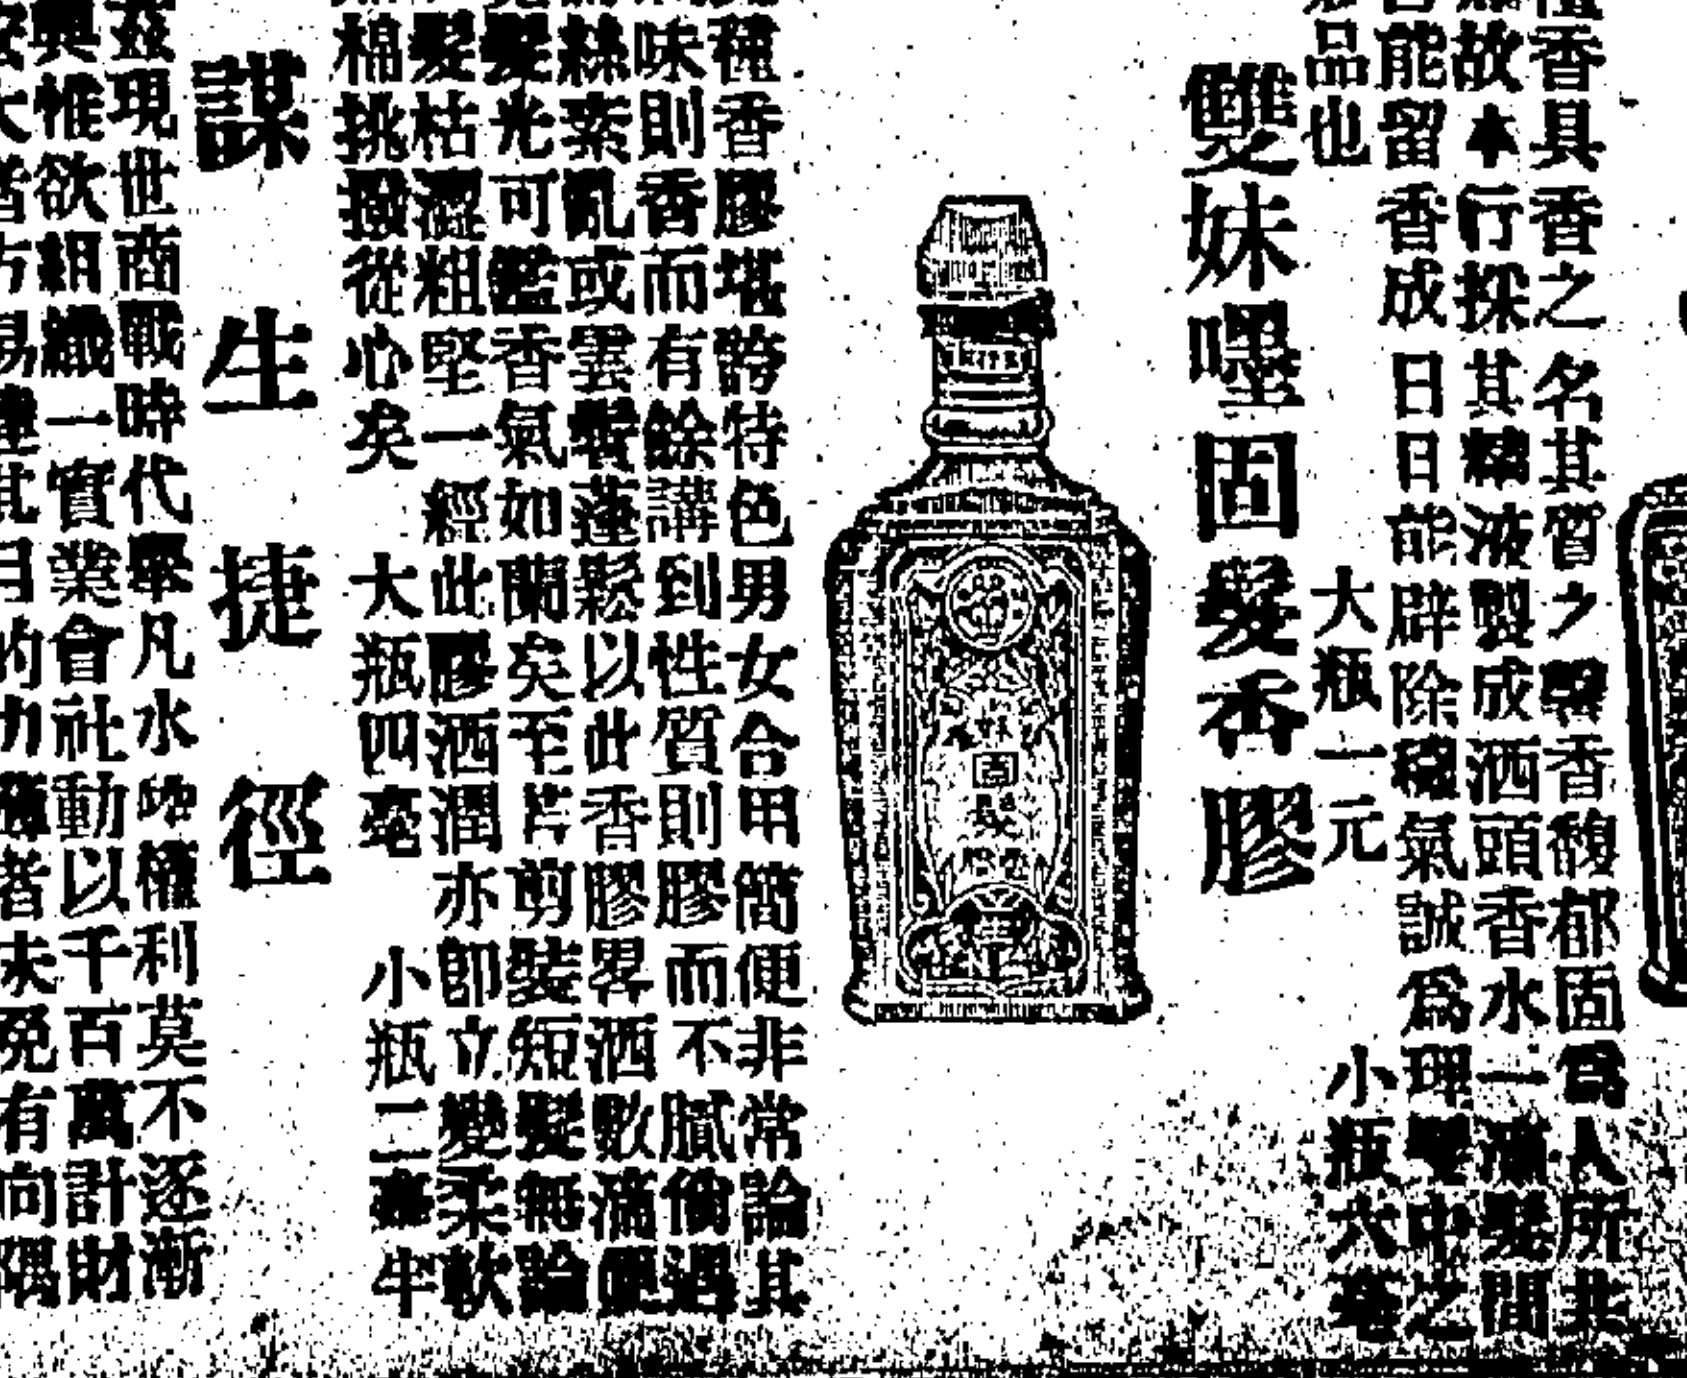 檀香具香之名其質之馨香馥郁固爲人所共
故本行採其精液製成洒頭香水一滴髮間
能留香成日日能辟除穢氣誠爲理髮中之
品也
大瓶一元 小瓶六毫
雙妹嚜固髮香膠
種香膠堪誇特色男女合用簡便非常論其
味則香而有餘講到性質則膠而不膩倘遇
絲紊亂或雲鬢蓬鬆以此香膠畧洒數滴便
髮光可鑑香氣如蘭矣至若剪裝短髮無論
髮枯澀粗堅一經此膠洒潤亦卽立變柔軟
棉挑撥從心矣
大瓶四毫 小瓶二毫半
謀生捷徑
茲現世商戰時代舉凡水陸權利莫不逐漸
興惟欲組織一實業會社動以千百萬計財